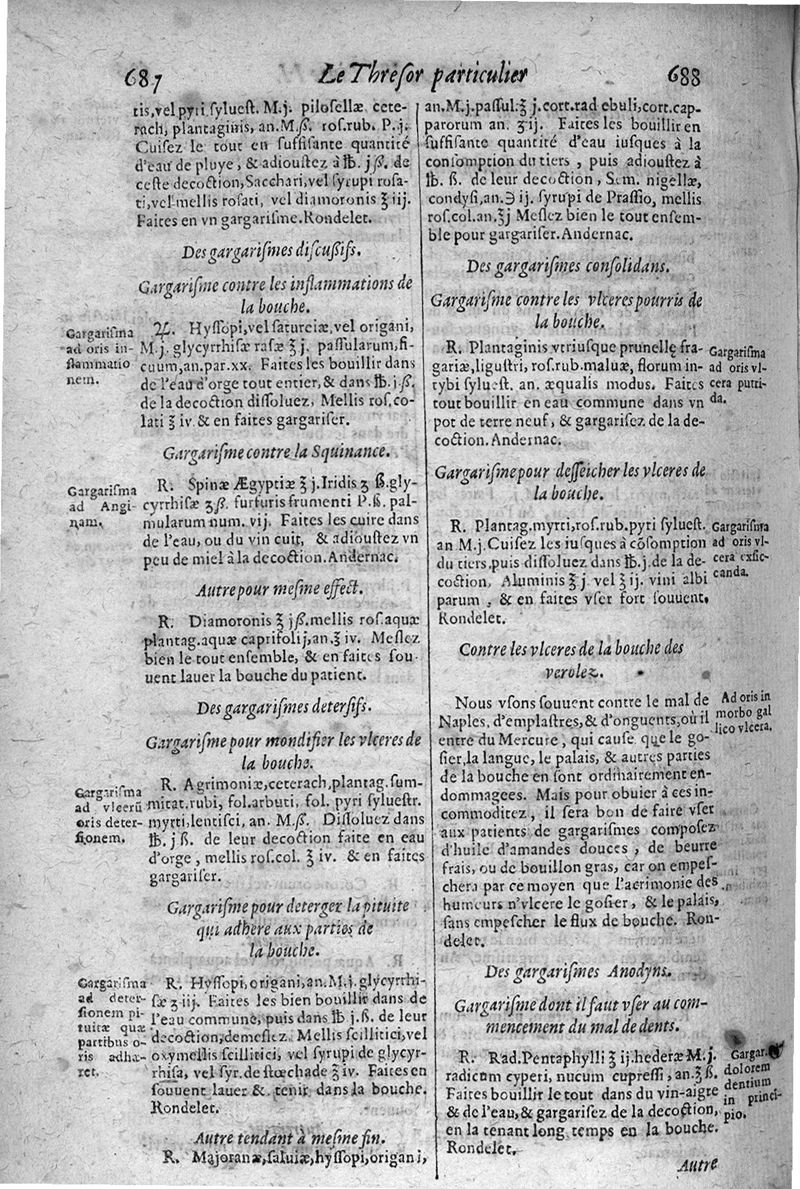 687
Le Thresor particulier
688
tis, vel pyri syluest. M.j. pilosellæ, cete-
rach, plantaginis, an. M.ß. ros. rub. P.j.
Cuisez le tout en suffisante quantité
d'eau de pluye, & adioustez à ℔. jß. de
ceste decoction, Sacchari, vel syrupi rosa-
ti, vel mellis rosati, vel diamoronis ℥ iij.
Faites en vn gargarisme. Rondelet.
Des gargarismes discußifs.
Gargarisme contre les inflammations de
la bouche.
Gargarisma
ad oris in-
flammatio
nem.
♃. Hyssopi, vel satureiæ, vel origani,
M.j. glycyrrhisæ rasæ ℥ j. passularum, fi-
cuum, an. par. xx. Faites les bouillir dans
de l'eau d'orge tout entier, & dans ℔. j.ß.
de la decoction dissoluez, Mellis ros. co-
lati ℥ iv. & en faites gargariser.
Gargarisme contre la Squinance.
Gargarisma
ad Angi-
nam.
R. Spinæ Ægyptiæ ℥ j. Iridis ʒ ß. gly-
cyrrhisæ ʒß. furfuris frumenti P.ß. pal-
mularum num. vij. Faites les cuire dans
de l'eau, ou du vin cuit, & adioustez vn
peu de miel à la decoction. Andernac.
Autre pour mesme effect.
R. Diamoronis ℥ jß. mellis ros. aquæ
plantag. aquæ caprifolij, an. ℥ iv. Meslez
bien le tout ensemble, & en faites sou-
uent lauer la bouche du patient.
Des gargarismes detersifs.
Gargarisme pour mondifier les vlceres de
la bouche.
Gargarisma
ad vlcerũ
oris deter-
sionem.
R. Agrimoniæ, ceterach, plantag. sum-
mitat. rubi, fol. arbuti, fol. pyri syluestr.
myrti, lentisci, an. M.ß. Dissoluez dans
℔. jß. de leur decoction faite en eau
d'orge, mellis ros. col. ℥ iv. & en faites
gargariser.
Gargarisme pour deterger la pituite
qui adhere aux parties de
la bouche.
Gargarisma
ad deter-
sionem pi-
tuitæ quæ
partibus o-
ris adhæ-
ret.
R. Hyssopi, origani, an. M.j. glycyrrhi-
sæ ʒ iij. Faites les bien bouillir dans de
l'eau commune, puis dans ℔ j.ß. de leur
decoction, demeslez. Mellis scillitici, vel
oxymellis scillitici, vel syrupi de glycyr-
rhisa, vel syr. de stœchade ℥ iv. Faites en
souuent lauer & tenir dans la bouche.
Rondelet.
Autre tendant à mesme fin.
R. Majoranæ, saluiæ, hyssopi, origani,
an. M.j. passul. ℥ j. cort. rad ebuli, cort. cap-
parorum an. ʒ ij. Faites les bouillir en
suffisante quantité d'eau iusques à la
consomption du tiers, puis adioustez à
℔. ß. de leur decoction, Sem. nigellæ,
condysi, an. ℈ ij. syrupi de Prassio, mellis
ros. col. an. ℥j Meslez bien le tout ensem-
ble pour gargariser. Andernac.
Des gargarismes consolidans.
Gargarisme contre les vlceres pourris de
la bouche.
R. Plantaginis vtriusque prunellę fra-
gariæ, ligustri, ros. rub. maluæ, florum in-
tybi syluest. an. æqualis modus. Faites
tout bouillir en eau commune dans vn
pot de terre neuf, & gargarisez de la de-
coction. Andernac.
Gargarisma
ad oris vl-
cera putri-
da.
Gargarisme pour desseicher les vlceres de
la bouche.
R. Plantag. myrti, ros. rub. pyri syluest.
an M.j. Cuisez les iusques à cõsomption
du tiers, puis dissoluez dans ℔. j. de la de-
coction, Aluminis ℥ j. vel ℥ ij. vini albi
parum, & en faites vser fort souuent.
Rondelet.
Gargarisma
ad oris vl-
cera exsic-
canda.
Contre les vlceres de la bouche des
verolez.
Nous vsons souuent contre le mal de
Naples, d'emplastres, & d'onguents, où il
entre du Mercure, qui cause que le go-
sier, la langue, le palais, & autres parties
de la bouche en sont ordinairement en-
dommagees. Mais pour obuier à ces in-
commoditez, il sera bon de faire vser
aux patients de gargarismes composez
d'huile d'amandes douces, de beurre
frais, ou de bouillon gras, car on empes-
chera par ce moyen que l'acrimonie des
humeurs n'vlcere le gosier, & le palais,
sans empescher le flux de bouche. Ron-
delet.
Ad oris in
morbo gal
lico vlcera.
Des gargarismes Anodyns.
Gargarisme dont il faut vser au com-
mencement du mal de dents.
R. Rad. Pentaphylli ℥ ij. hederæ M.j.
radicum cyperi, nucum cupressi, an. ℥ ß.
Faites bouillir le tout dans du vin-aigre
& de l'eau, & gargarisez de la decoction,
en la tenant long temps en la bouche.
Rondelet.
Gargar.
dolorem
dentium
in princi-
pio.
Autre